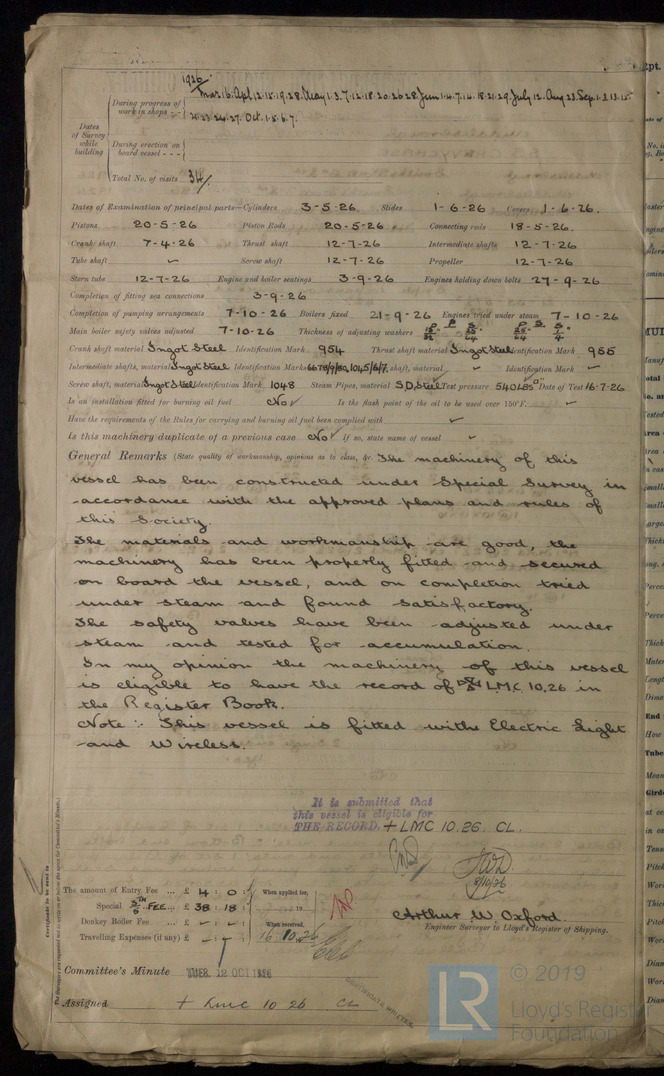 1926
Mar.16. Apl.12.15.19.28. May 1.3.7.12.18.20.26.28. Jun 1.4.7.14.18.21.29. July 12. Aug 23. Sep. 1.3.13.15.
During progress of work in shops - -
24.27. Oct. 1.5.6.7.
Dates of Survey while building
During erection on board vessel - - -
Total No. of visits 34
Dates of Examination of principal parts—Cylinders 3-5-26 Slides 1-6-26 Covers 1-6-26.
Pistons 20-5-26 Piston Rods 20-5-26 Connecting rods 18-5-26.
Crank shaft 7-4-26 Thrust shaft 12-7-26 Intermediate shafts 12-7-26
Tube shaft Screw shaft 12-7-26 Propeller 12-7-26
Stern tube 12-7-26 Engine and boiler seatings 3-9-26 Engines holding down bolts 27-9-26
Completion of fitting sea connections 3-9-26
Completion of pumping arrangements 7-10-26 Boilers fixed 21-9-26 Engines tried under steam 7-10-26
Main boiler safety valves adjusted 7-10-26 Thickness of adjusting washers
Crank shaft material Ingot Steel Identification Mark 954 Thrust shaft material Ingot Steel Identification Mark 955
Intermediate shafts, material Ingot Steel Identification Marks shaft, material Identification Mark
Screw shaft, material Ingot Steel Identification Mark 1048 Steam Pipes, material S.D. Steel Test pressure 540 LBS Date of Test 16-7-26
Is an installation fitted for burning oil fuel No Is the flash point of the oil to be used over 150°F.
Have the requirements of the Rules for carrying and burning oil fuel been complied with
Is this machinery duplicate of a previous case No If so, state name of vessel
General Remarks (State quality of workmanship, opinions as to class, &c. The machinery of this
vessel has been constructed under Special Survey in
accordance with the approved plans and rules of
this Society.
The materials and workmanship are good, the
machinery has been properly fitted and secured
on board the vessel, and on completion tried
under steam and found satisfactory.
The safety valves have been adjusted under
steam and tested for accumulation.
In my opinion the machinery of this vessel
is eligible to have the record of LMC 10.26 in
the Register Book.
Note :- This vessel is fitted with Electric Light
and Wireless.
It is submitted that
this vessel is eligible for
THE RECORD. + LMC 10.26. CL.
8/10/26
The amount of Entry Fee ... £ 4 : 0 :
Special FEE ... £ 38 : 18 :
Donkey Boiler Fee ... £ - : - :
Travelling Expenses (if any) £ - : - :
When applied for,
When received,
16.10.26
Arthur W. Oxford.
Engineer Surveyor to Lloyd's Register of Shipping.
Committee's Minute TUES. 12 OCT 1926
Assigned + LMC 10 26 CL
CERTIFICATE WRITTEN
LR
© 2019
Lloyd's Register
Foundation